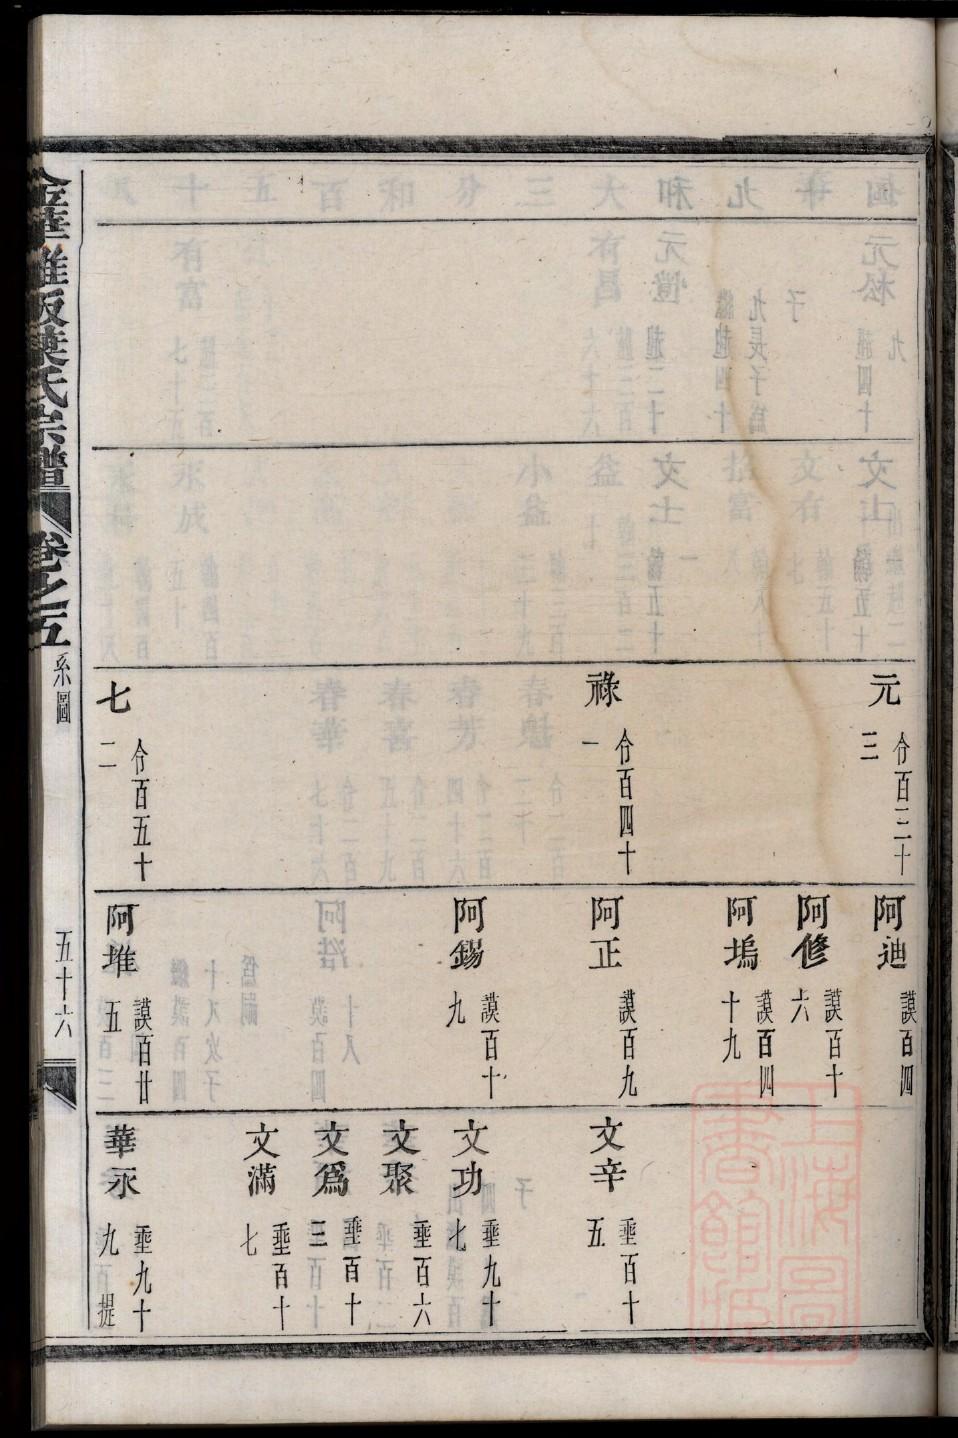 元 㒰百三十三
祿 㒰百四十一
七 㒰百五十二
阿迪 謨百四
阿修 謨百十六
阿塢 謨百四十九
阿正 謨百九
阿錫 謨百十九
阿堆 謨百廿五
文辛 垂百十五
文功 垂九十七
文聚 垂百六
文爲 垂百十三
文滿 垂百十七
華永 垂九十九 提
宗譜
卷之五
系圖
五十六
上海圖書館藏